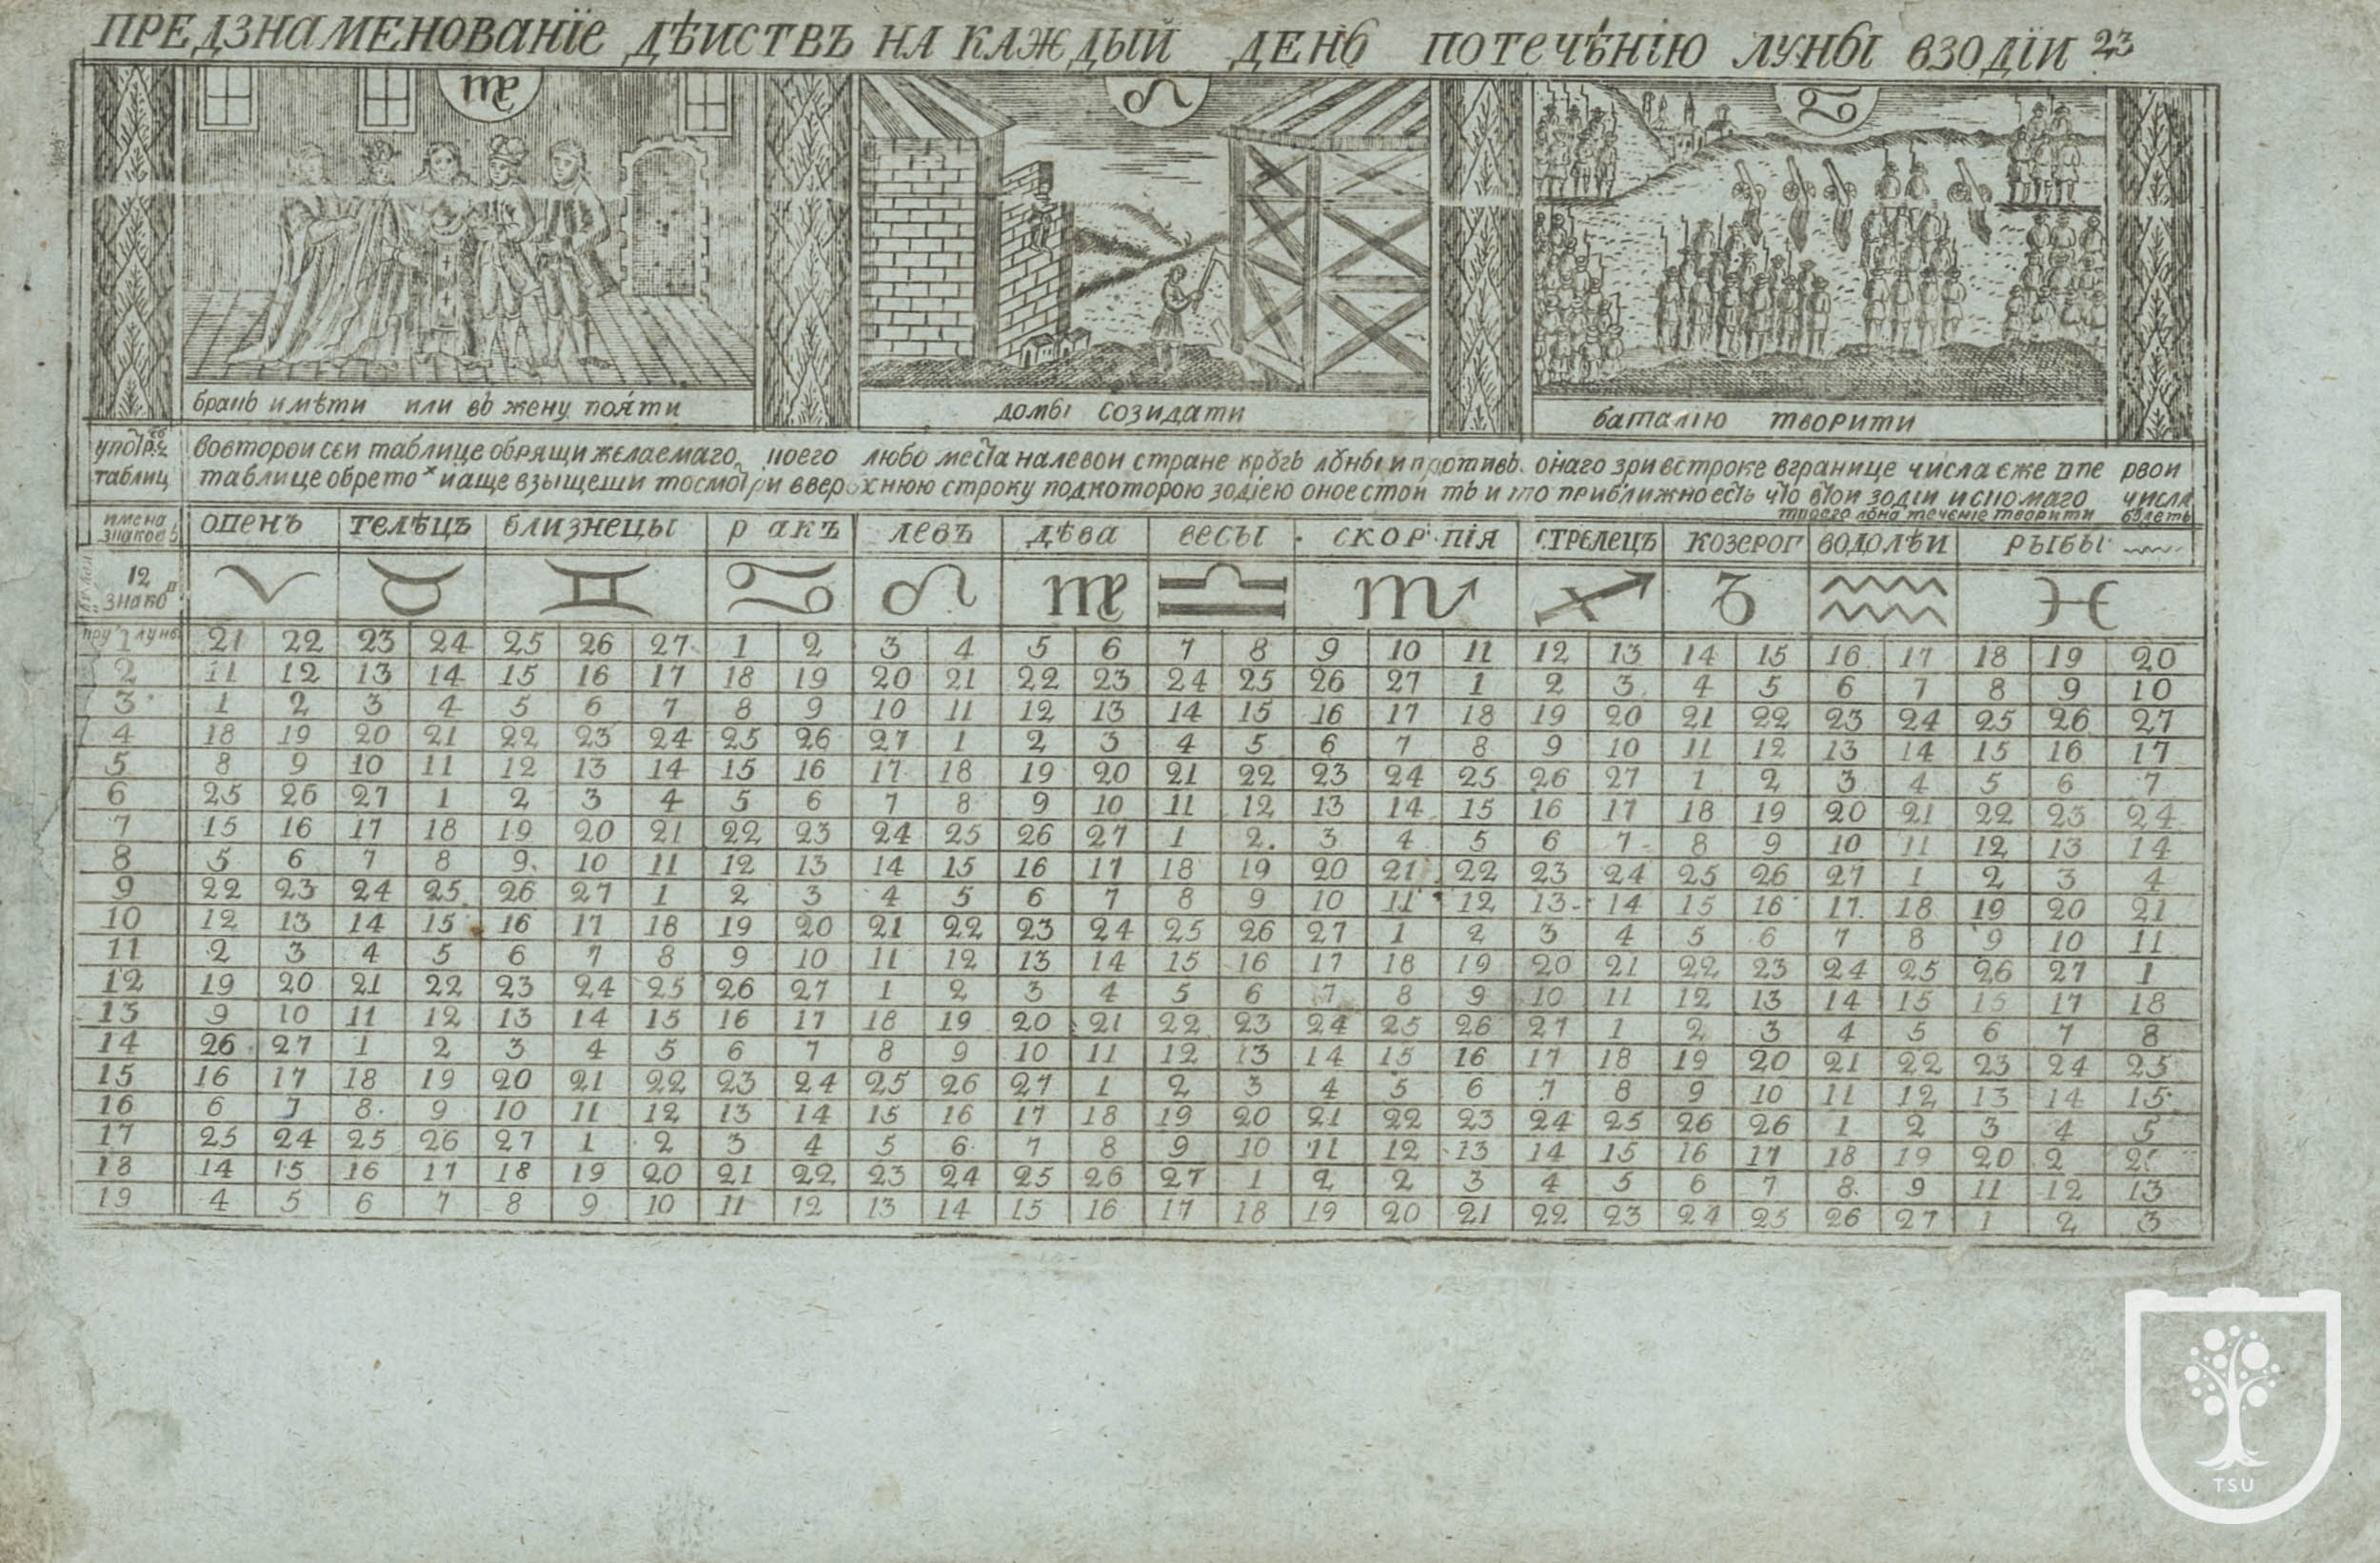 ПРЕДЗНАМЕНОВАНІЕ ДѢИСТВЪ НА КАЖДЫЙ ДЕНЬ ПОТЕЧѢНІЮ ЛУНЫ ВЗОДІИ 23
♍ ♌ ♋
бракъ имѣти или въ жену пояти
домы созидати
баталію творити
таблиц
вовторои сеи таблице обрящи желаемаго любо места налевои стране кругъ луны и противъ онаго зри встроке вгранице числа еже впе рвои
таблице обрето х и аще взыщеши тосмотри вверхнюю строку подкоторою зодіею оное стои тъ и то приближно есть что втои зодіи числа
течение творити будетъ
имена знаковъ опенъ телѣцъ близнецы р акъ левъ дѣва весы скор пія стрелецъ козерог водолѣи рыбы
12 знако ♈ ♉ ♊ ♋ ♌ ♍ ♎ ♏ ♐ ♑ ♒ ♓
1 луны 21 22 23 24 25 26 27 1 2 3 4 5 6 7 8 9 10 11 12 13 14 15 16 17 18 19 20
2 11 12 13 14 15 16 17 18 19 20 21 22 23 24 25 26 27 1 2 3 4 5 6 7 8 9 10
3 1 2 3 4 5 6 7 8 9 10 11 12 13 14 15 16 17 18 19 20 21 22 23 24 25 26 27
4 18 19 20 21 22 23 24 25 26 27 1 2 3 4 5 6 7 8 9 10 11 12 13 14 15 16 17
5 8 9 10 11 12 13 14 15 16 17 18 19 20 21 22 23 24 25 26 27 1 2 3 4 5 6 7
6 25 26 27 1 2 3 4 5 6 7 8 9 10 11 12 13 14 15 16 17 18 19 20 21 22 23 24
7 15 16 17 18 19 20 21 22 23 24 25 26 27 1 2 3 4 5 6 7 8 9 10 11 12 13 14
8 5 6 7 8 9 10 11 12 13 14 15 16 17 18 19 20 21 22 23 24 25 26 27 1 2 3 4
9 22 23 24 25 26 27 1 2 3 4 5 6 7 8 9 10 11 12 13 14 15 16 17 18 19 20 21
10 12 13 14 15 16 17 18 19 20 21 22 23 24 25 26 27 1 2 3 4 5 6 7 8 9 10 11
11 2 3 4 5 6 7 8 9 10 11 12 13 14 15 16 17 18 19 20 21 22 23 24 25 26 27 1
12 19 20 21 22 23 24 25 26 27 1 2 3 4 5 6 7 8 9 10 11 12 13 14 15 15 17 18
13 9 10 11 12 13 14 15 16 17 18 19 20 21 22 23 24 25 26 27 1 2 3 4 5 6 7 8
14 26 27 1 2 3 4 5 6 7 8 9 10 11 12 13 14 15 16 17 18 19 20 21 22 23 24 25
15 16 17 18 19 20 21 22 23 24 25 26 27 1 2 3 4 5 6 7 8 9 10 11 12 13 14 15
16 6 7 8 9 10 11 12 13 14 15 16 17 18 19 20 21 22 23 24 25 26 26 1 2 3 4 5
17 25 24 25 26 27 1 2 3 4 5 6 7 8 9 10 11 12 13 14 15 16 17 18 19 20 2
18 14 15 16 17 18 19 20 21 22 23 24 25 26 27 1 2 2 3 4 5 6 7 8 9 11 12 13
19 4 5 6 7 8 9 10 11 12 13 14 15 16 17 18 19 20 21 22 23 24 25 26 27 1 2 3
TSU